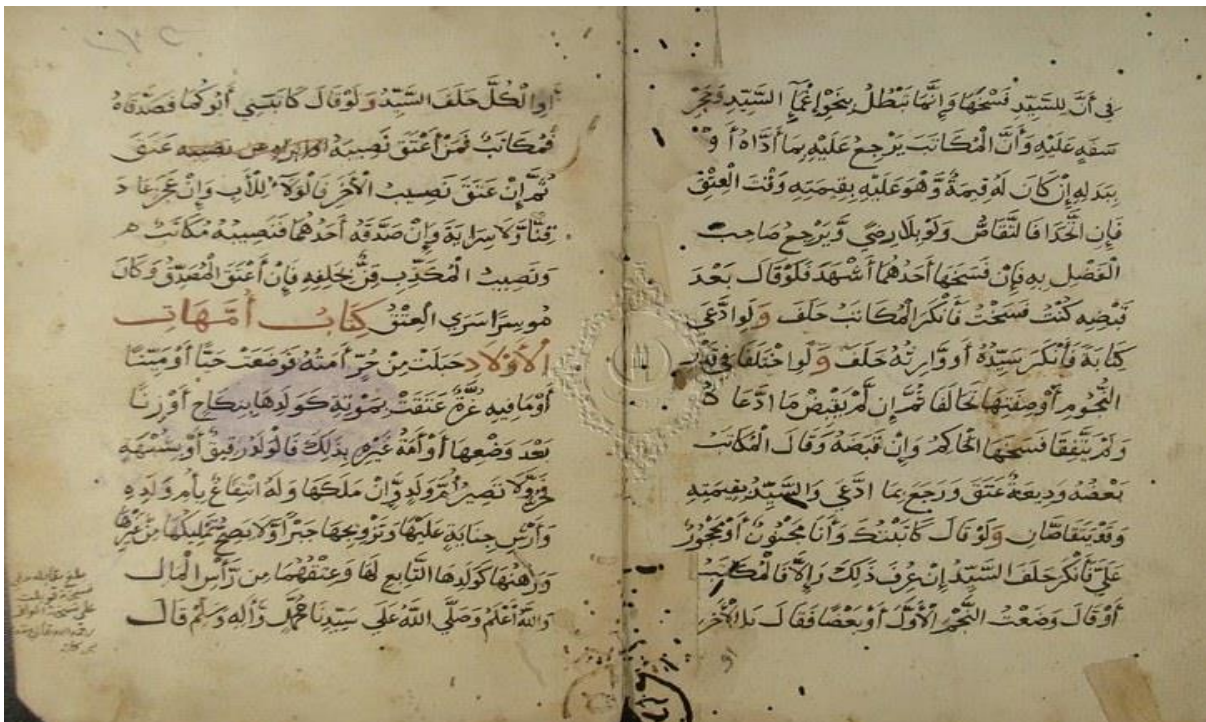 في أن للسيد فسخها وإنما تبطل بنحو إغماء السيد فحجر
سفه عليه وأن المكاتب يرجع عليه بما أداه أو
ببدله إن كان له قيمة وهو عليه بقيمته وقت العتق
فإن اتحدا فالتقاص ولو بلا رضى ويرجع صاحب
الفضل به فإن فسخها أحدهما أشهد فلو قال بعد
قبضه كنت فسخت فأنكر المكاتب حلف ولو ادعى
كتابة فأنكر سيده أو وارثه حلف ولو اختلفا في قدر
النجوم أو صفتها تحالفا ثم إن لم يقبض ما ادعاه
ولم يتفقا فسخها الحاكم وإن قبضه وقال المكاتب
بعضه وديعة عتق ورجع بما ادعى والسيد بقيمته
وقد يتقاصان ولو قال كاتبتك وأنا مجنون أو محجور
علي فأنكر حلف السيد إن عرف ذلك وإلا فالمكاتب
أو قال وضعت النجم الأول أو بعضا فقال بل الآخر
أو الكل حلف السيد ولو قال كاتبني أبوكما فصدقاه
فمكاتب فمن أعتق نصيبه أو أبرأه عن نصيبه عتق
ثم إن عتق نصيب الآخر فالولاء للأب وإن عجز عاد
قنا ولا سراية وإن صدقه أحدهما فنصيبه مكاتب
ونصيب المكذب قن بحلفه فإن أعتق المصدق وكان
موسرا سرى العتق كتاب أمهات
الأولاد حبلت من حر أمته فوضعت حيا أو ميتا
أو ما فيه غرة عتقت بموته كولدها بنكاح أو زنا
بعد وضعها أو أمة غيره بذلك فالولد رقيق أو بشبهة
فحر ولا تصير أم ولد وإن ملكها وله انتفاع بأم ولده
وأرش جناية عليها وتزويجها جبرا ولا يصح تمليكها من غيرها
ورهنها كولدها التابع لها وعتقهما من رأس المال
والله أعلم وصلى الله على سيدنا محمد وآله وسلم قال